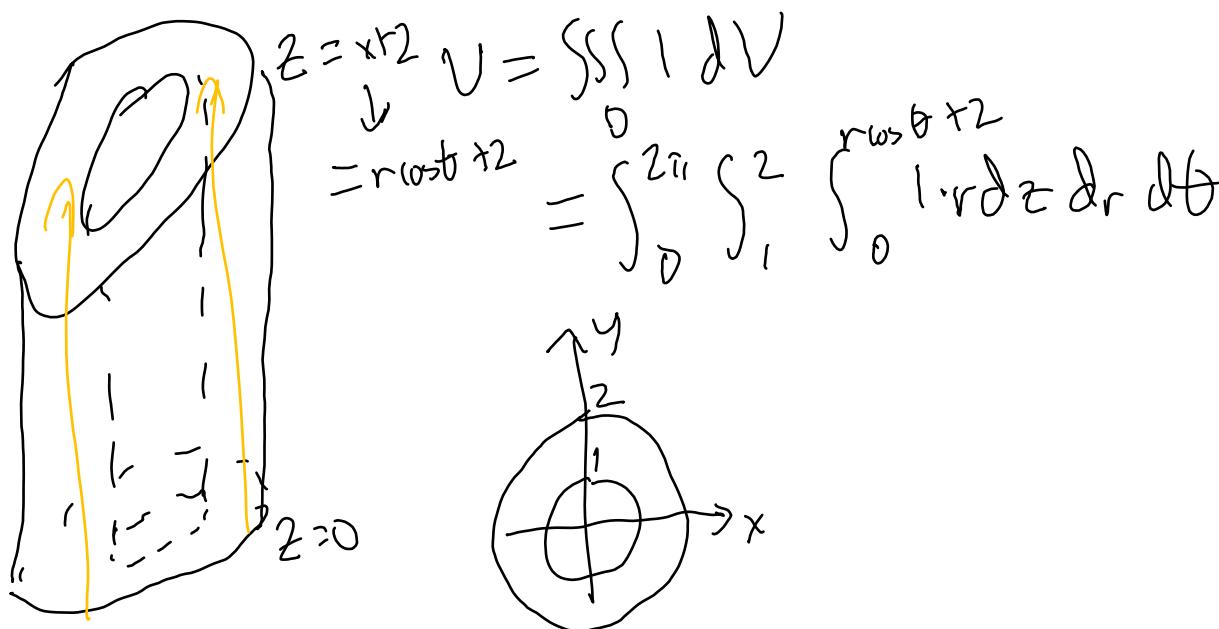 z = x+2
↓
= r cos θ + 2
V = ∭_D 1 dV
= ∫_0^{2π} ∫_1^2 ∫_0^{r cos θ + 2} 1·r dz dr dθ
z=0
y
2
1
x